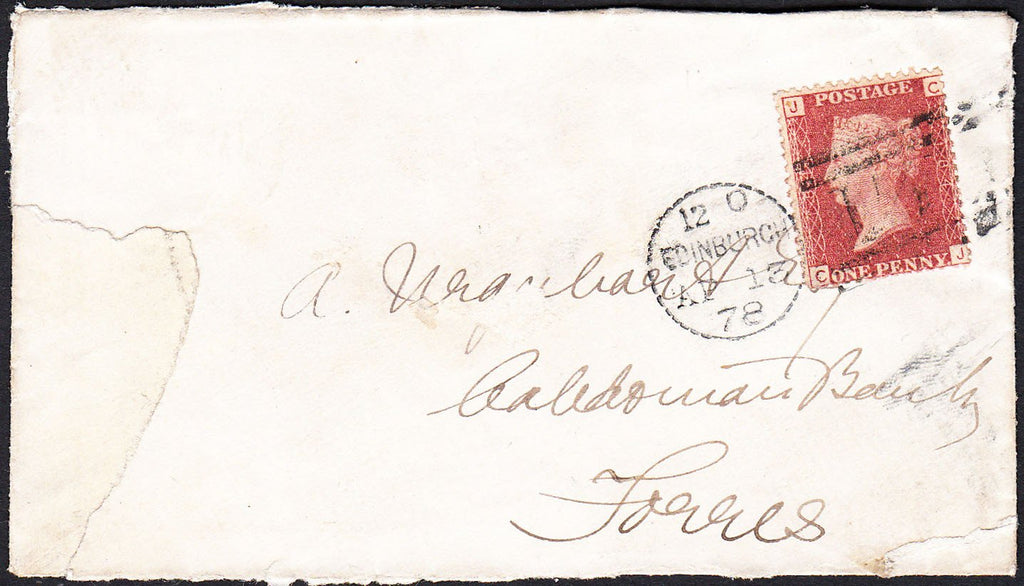 J POSTAGE C
C ONE PENNY J
12 O
EDINBURGH
AP 13
78
A. Urquhart
Caledonian Bank
Forres